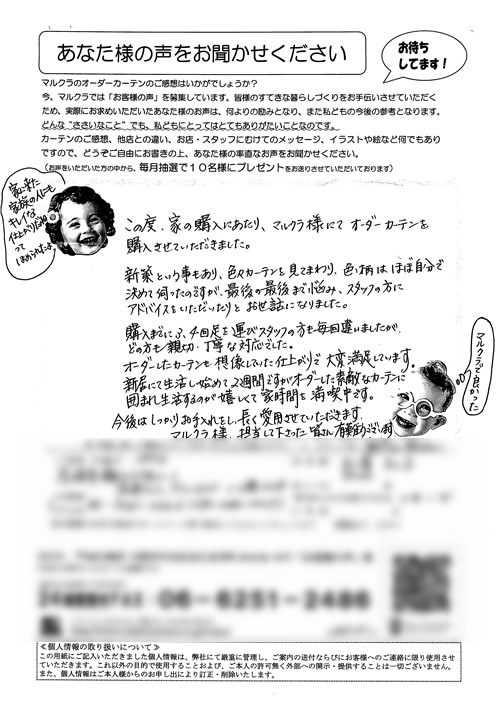 あなた様の声をお聞かせください
お待ち
してます！
マルクラのオーダーカーテンのご感想はいかがでしょうか？
今、マルクラでは「お客様の声」を募集しています。皆様のすてきな暮らしづくりをお手伝いさせていただく
ため、実際にお求めいただいたあなた様のお声は、何よりの励みとなり、また私どもの今後の参考となります。
どんな“ささいなこと”でも、私どもにとってはとてもありがたいことなのです。
カーテンのご感想、他店との違い、お店・スタッフにむけてのメッセージ、イラストや絵など何でもあり
ですので、どうぞご自由にお書きの上、あなた様の率直なお声をお聞かせください。
（お声をいただいた方の中から、毎月抽選で１０名様にプレゼントをお送りさせていただいております）
家に来た
家族の人にも
キレイな
仕上がりだね
って
ほめられたよ
この度、家の購入にあたり、マルクラ様にて オーダーカーテンを
購入させていただきました。
新築という事もあり、色々カーテンを見てまわり、色・柄は ほぼ自分で
決めて伺ったのですが、最後の最後まで悩み、スタッフの方に
アドバイスをいただいたりと お世話になりました。
購入までに3、4回足を運びスタッフの方も毎回違いましたが、
どの方も親切・丁寧な対応でした。
オーダーしたカーテンも想像していた仕上がりで大変満足しています。
新居にて生活し始めて2週間ですがオーダーした素敵なカーテンに
囲まれ生活するのが嬉しくて家時間を満喫中です。
今後はしっかりお手入れをし、長く愛用させていただきます。
マルクラ様、担当して下さった皆さん有難うございます
マルクラで良かった
06-6251-2486
≪個人情報の取り扱いについて≫
この用紙にご記入いただきました個人情報は、弊社にて厳重に管理し、ご案内の送付ならびにお客様へのご連絡に限り使用させ
ていただきます。これ以外の目的で使用することおよび、ご本人の許可無く外部への開示・提供することは一切ございません。
また、個人情報はご本人様からのお申し出により訂正・削除いたします。